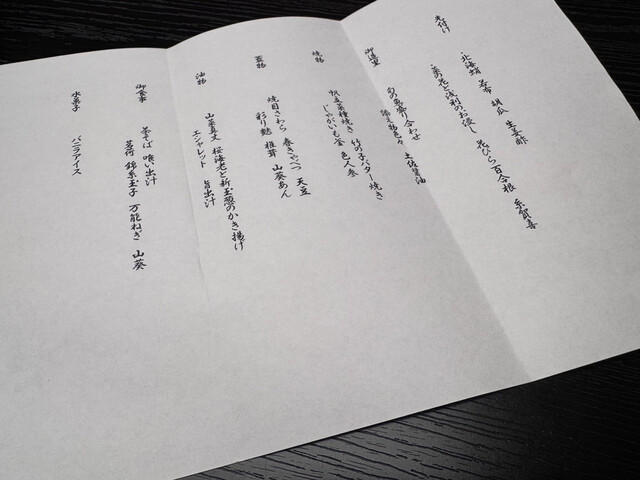 先付け
・北海蛸 若布 胡瓜 生姜酢
・菜の花と浅利のお浸し 花びら百合根 糸賀喜
御造里
旬の魚盛り合わせ
妻色々 土佐醤油
焼物
帆立菜種焼き 竹の子バター焼き
じゃがいも 色人参
蓋物
焼目さわら 春きゃべつ 天豆
彩り麩 椎茸 山葵あん
油物
山菜真丈 桜海老と新玉葱のかき揚げ
エシャレット 旨出汁
御食事
茶そば 喰い出汁
若布 錦糸玉子 万能ねぎ 山葵
水菓子
バニラアイス